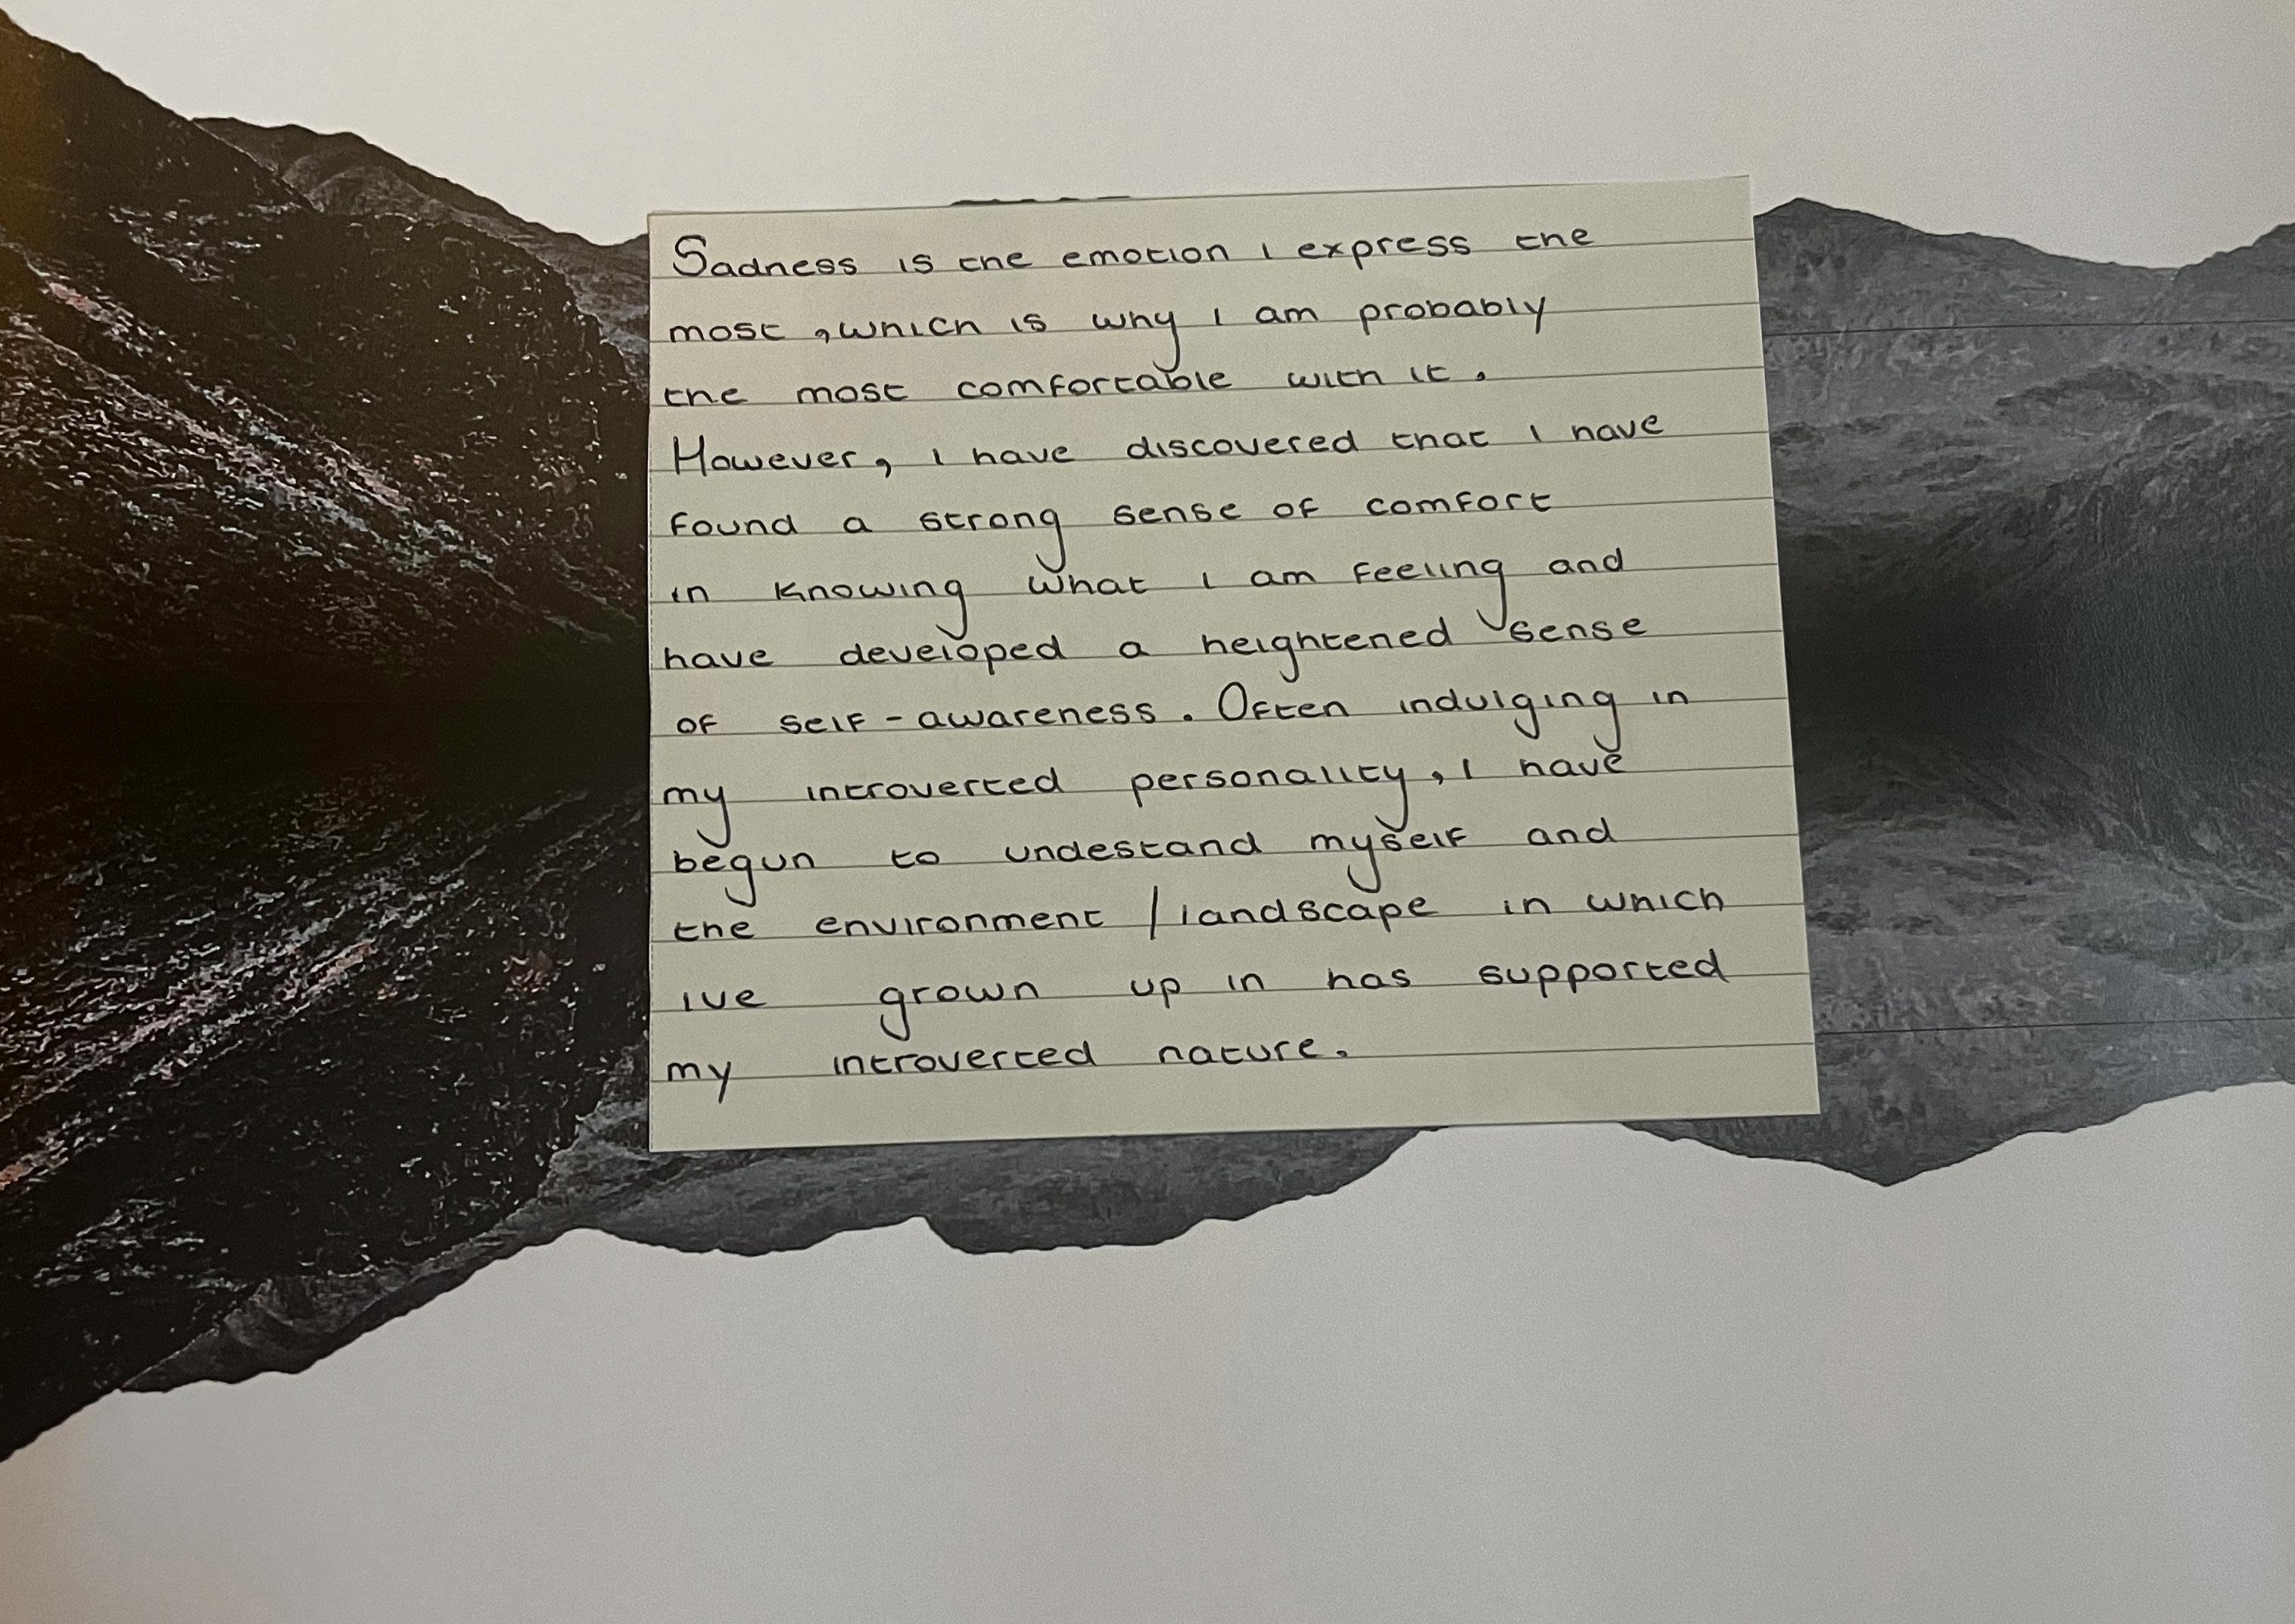 Sadness is the emotion I express the
most, which is why I am probably
the most comfortable with it.
However, I have discovered that I have
found a strong sense of comfort
in knowing what I am feeling and
have developed a heightened sense
of self-awareness. Often indulging in
my introverted personality, I have
begun to undestand myself and
the environment / landscape in which
ive grown up in has supported
my introverted nature.